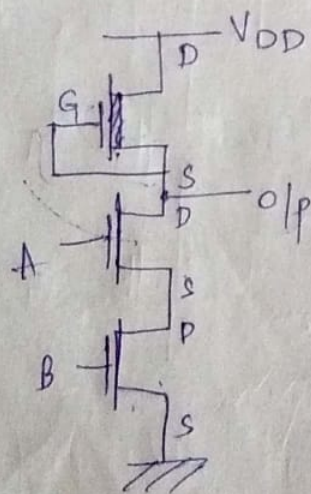 VDD
D
G
S
D
o/p
A
S
D
B
S